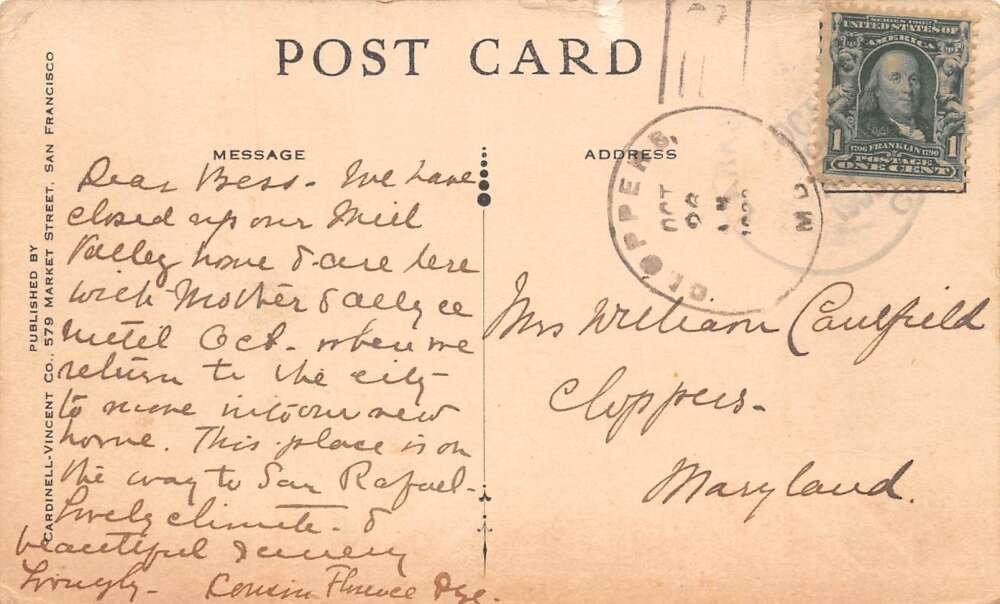 POST CARD
MESSAGE
ADDRESS
PUBLISHED BY
CARDINELL-VINCENT CO., 579 MARKET STREET, SAN FRANCISCO
SERIES 1902
UNITED STATES OF
AMERICA
1 1
1706 FRANKLIN 1790
POSTAGE
ONE CENT
CLOPPERS, MD.
OCT
AM
Dear Bess - We have
closed up our Mill
Valley home & are here
with Mother &
until Oct. when we
return to the city
to move into our new
home. This place is on
the way to San Rafael -
Lovely climate - &
beautiful scenery
Lovingly - Cousin Florence
Mrs William Caulfield
Cloppers -
Maryland.